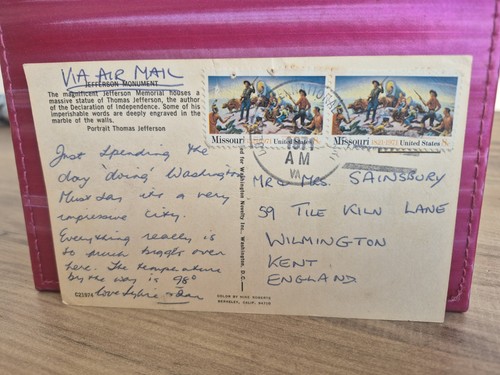 VIA AIR MAIL
JEFFERSON MONUMENT
The magnificent Jefferson Memorial houses a
massive statue of Thomas Jefferson, the author
of the Declaration of Independence. Some of his
imperishable words are deeply engraved in the
marble of the walls.
Portrait Thomas Jefferson
Just spending the
day 'doing' Washington
Must say it's a very
impressive city.
Everything really is
so much bigger over
here. The temperature
by the way is 98°
Love Sylvia &
C21974
for Washington Novelty Inc., Washington, D.C.
COLOR BY MIKE ROBERTS
BERKELEY, CALIF. 94710
Missouri 1821-1971 United States 8c
Missouri 1821-1971 United States 8c
AM
VA
MR & MRS. SAINSBURY
59 TILE KILN LANE
WILMINGTON
KENT
ENGLAND